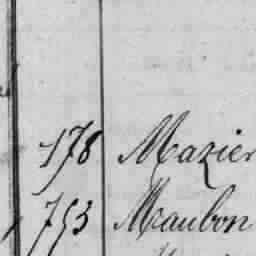 178 Mazier
753 Maubon